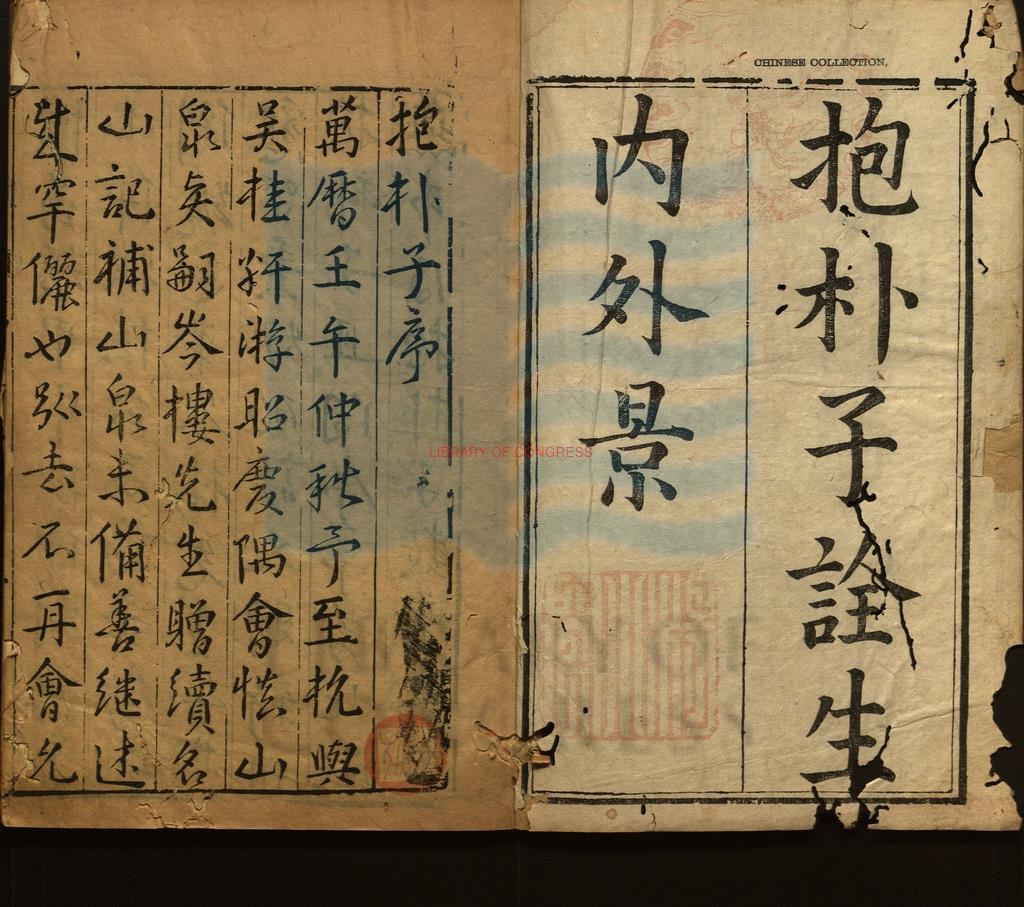 CHINESE COLLECTION,
抱朴子詮生
内外景
抱朴子序
萬曆壬午仲秋予至杭與
吴桂軒游昭慶隅會慎山
泉矣嗣岑樓先生贈續名
山記補山泉未備善継述
罕儷也別去不再會允
LIBRARY OF CONGRESS